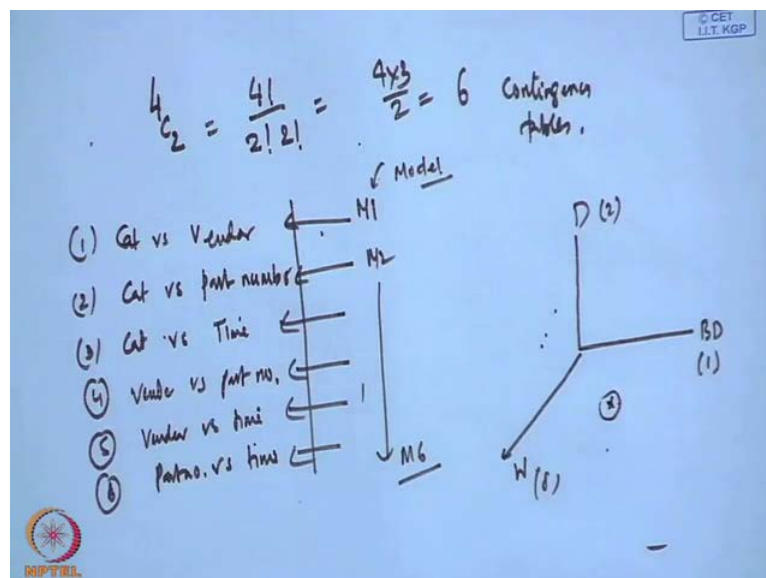 © CET
I.I.T. KGP
4C2 = 4!/2! 2! = 4x3/2 = 6 Contingency tables.
Model
(1) Cat vs Vendor M1
(2) Cat vs part number M2
(3) Cat vs Time
(4) Vendor vs part no.
(5) Vendor vs time
(6) Part no. vs time M6
D (2)
BD
(1)
W
NPTEL